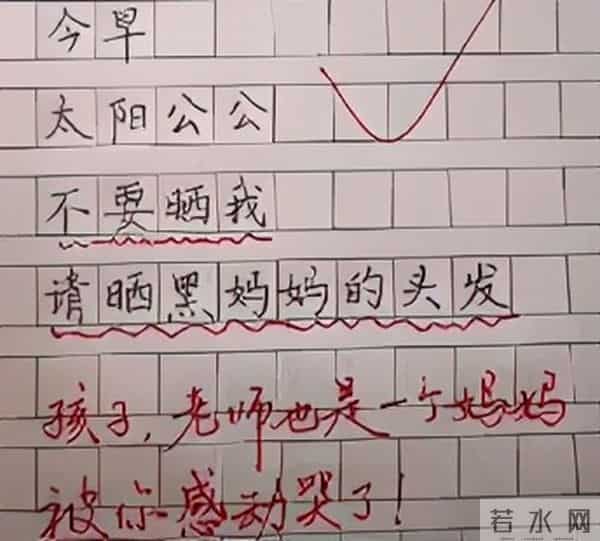 今早
太阳公公
不要晒我
请晒黑妈妈的头发
孩子,老师也是一个妈妈
被你感动哭了!
若水网